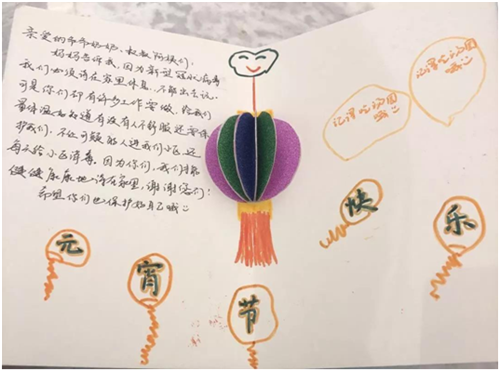 亲爱的爷爷奶奶、叔叔阿姨们：
妈妈告诉我，因为新冠状病毒
我们必须待在家里休息，不能出去玩，
可是你们却有许多工作要做，给我们
量体温知道有没有人不舒服还要保
护我们，不让可疑的人进我们小区，还
每天给小区消毒。因为你们，我们才能
健健康康地待在家里，谢谢你们！
希望你们也保护好自己哦
记得吃汤圆
哦
记得吃汤圆
哦
元宵节快乐